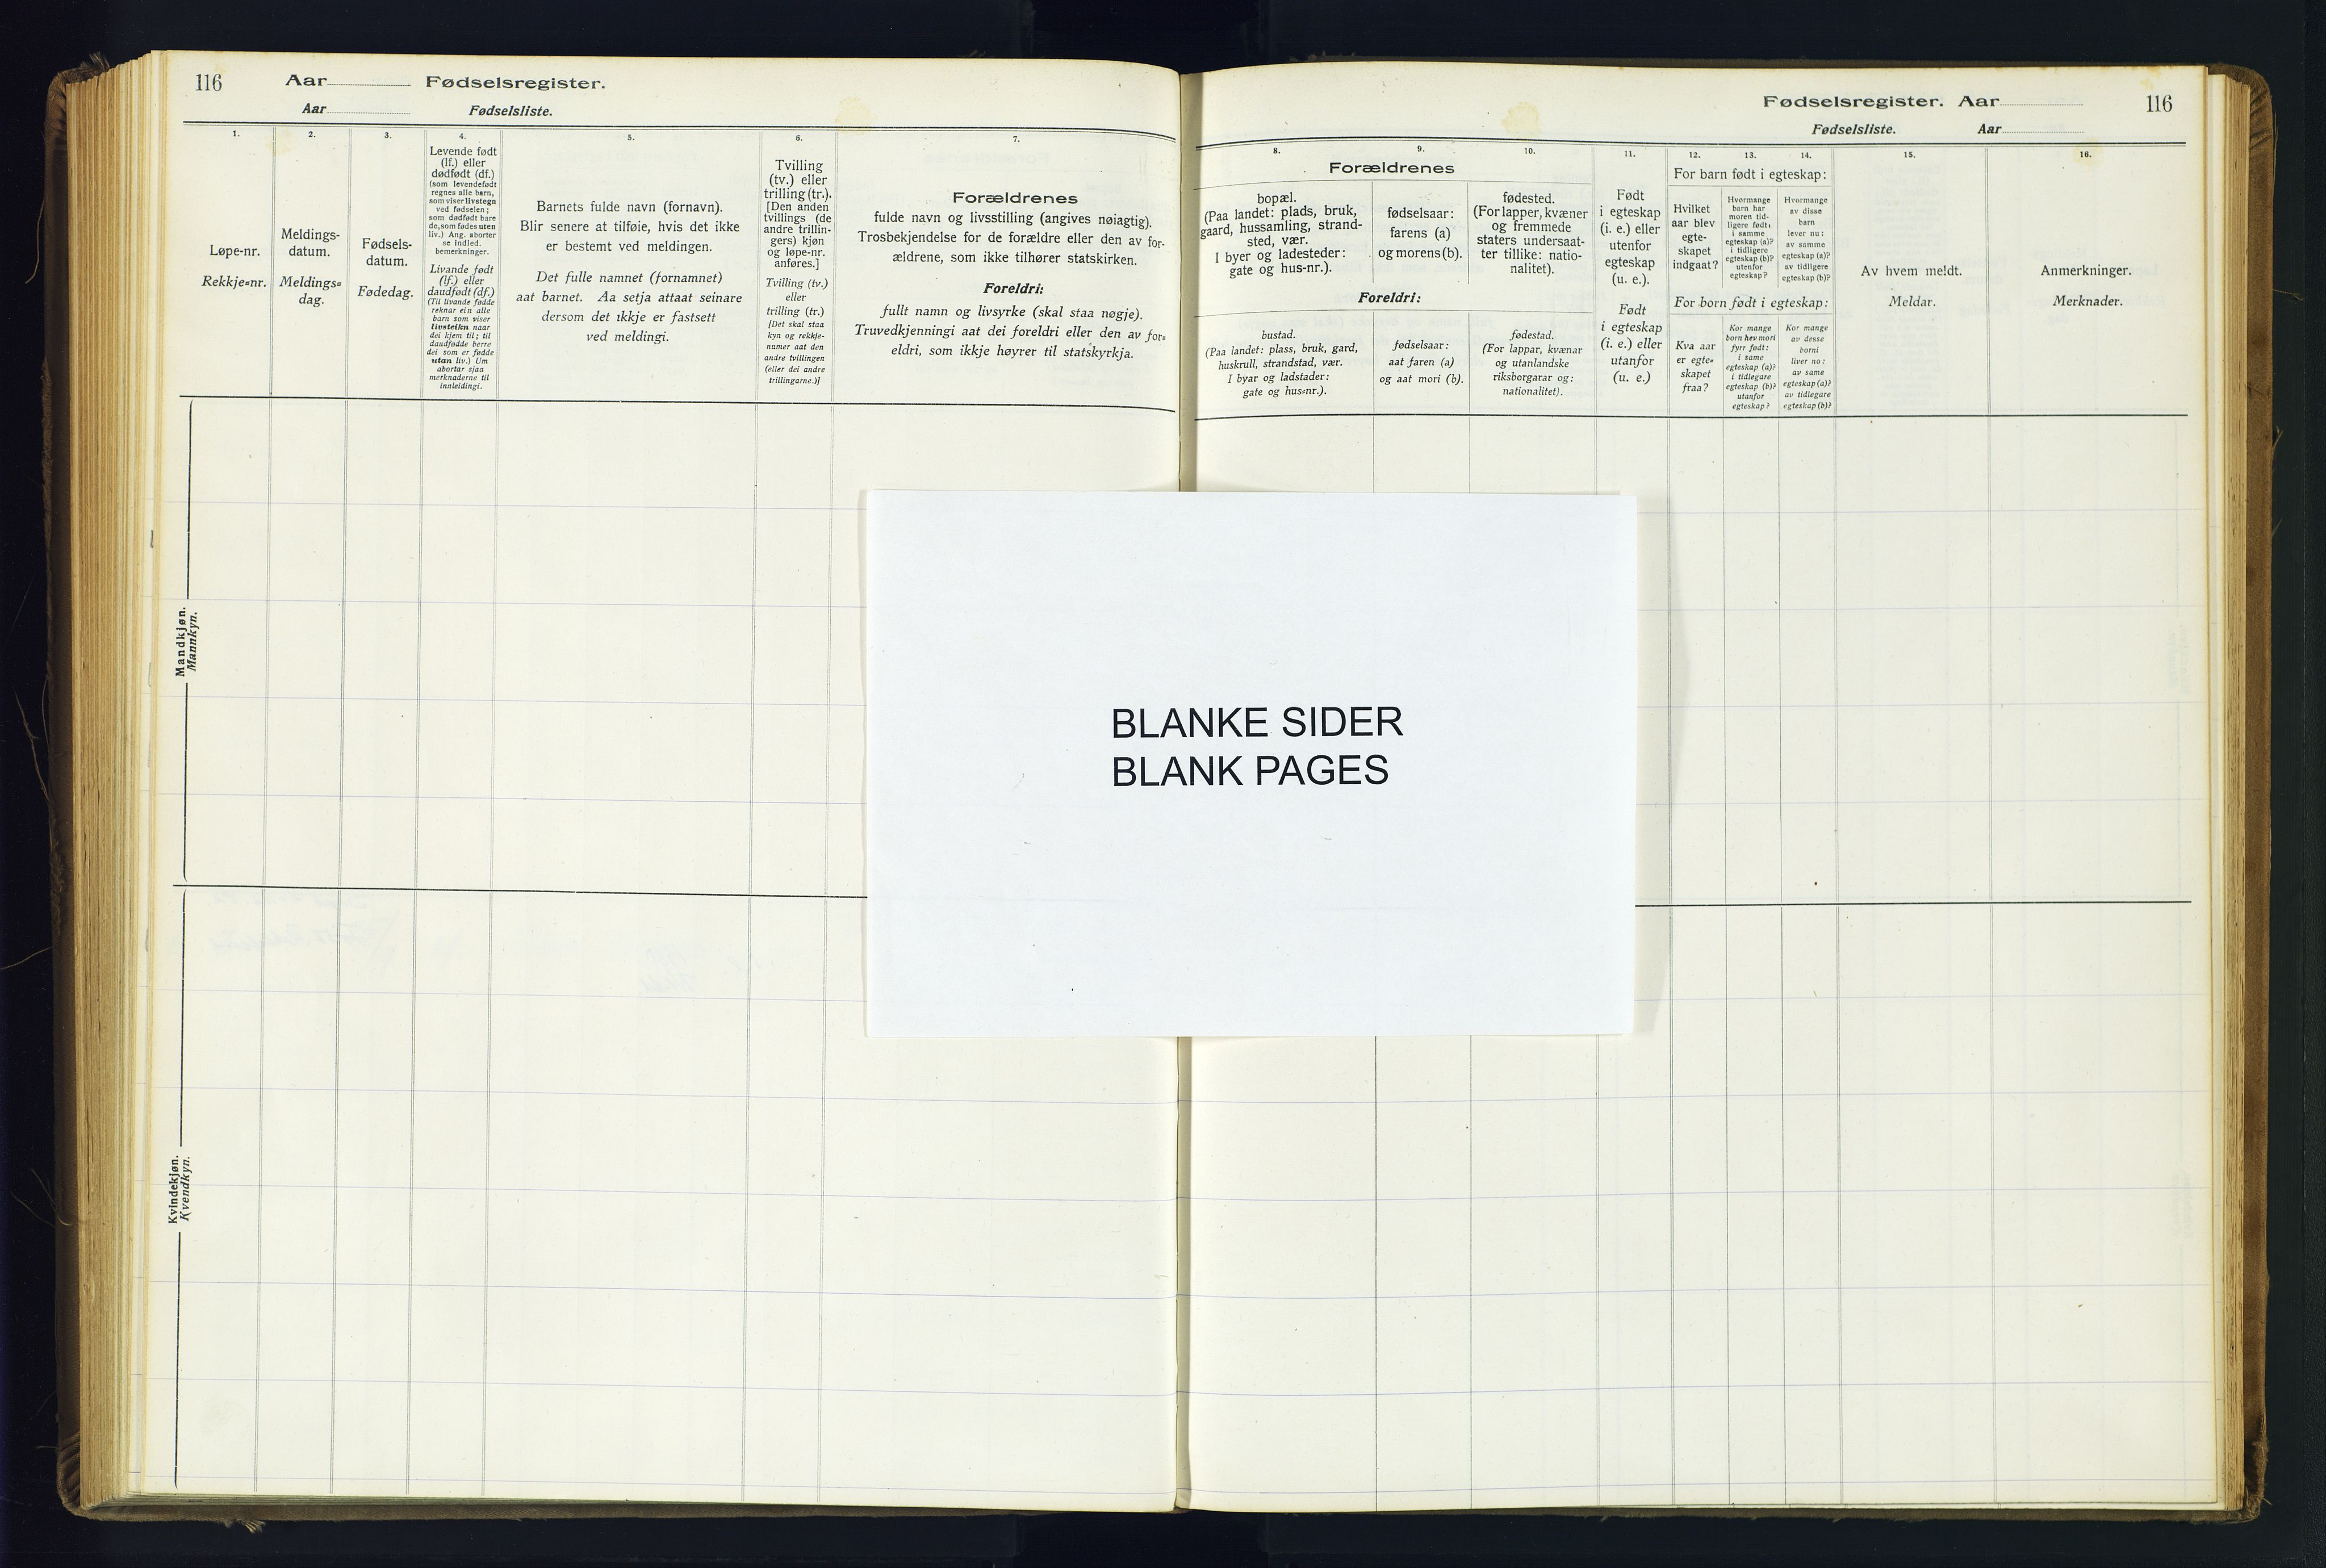 116
Aar
Fødselsregister.
Aar
Fødselsliste.
1.
Løpe-nr.
Rekkje=nr.
2.
Meldings-
datum.
Meldings=
dag.
3.
Fødsels-
datum.
Fødedag.
4.
Levende født
(lf.) eller
dødfødt (df.)
(som levendefødt
regnes alle barn,
som viser livstegn
ved fødselen;
som dødfødt bare
de, som fødes uten
liv.) Ang. aborter
se indled.
bemerkninger.
Livande født
(lf.) eller
daudfødt (df.)
(Til livande fødde
reknar ein alle
barn som viser
livsteikn naar
dei kjem til; til
daudfødde berre
dei som er fødde
utan liv.) Um
abortar sjaa
merknaderne til
innleidingi.
5.
Barnets fulde navn (fornavn).
Blir senere at tilføie, hvis det ikke
er bestemt ved meldingen.
Det fulle namnet (fornamnet)
aat barnet. Aa setja attaat seinare
dersom det ikkje er fastsett
ved meldingi.
6.
Tvilling
(tv.) eller
trilling (tr.).
[Den anden
tvillings (de
andre trillin-
gers) kjøn
og løpe-nr.
anføres.]
Tvilling (tv.)
eller
trilling (tr.)
[Det skal staa
kyn og rekkje-
numer aat den
andre tvillingen
(eller dei andre
trillingarne.)]
7.
Forældrenes
fulde navn og livsstilling (angives nøiagtig).
Trosbekjendelse for de forældre eller den av for-
ældrene, som ikke tilhører statskirken.
Foreldri:
fullt namn og livsyrke (skal staa nøgje).
Truvedkjenningi aat dei foreldri eller den av for=
eldri, som ikkje høyrer til statskyrkja.
Mandkjøn.
Mannkyn.
Kvindekjøn.
Kvendkyn.
Fødselsregister. Aar
116
Fødselsliste.
Aar
Forældrenes
8.
bopæl.
(Paa landet: plads, bruk,
gaard, hussamling, strand-
sted, vær.
I byer og ladesteder:
gate og hus-nr.).
9.
fødselsaar:
farens (a)
og morens (b).
10.
fødested.
(For lapper, kvæner
og fremmede
staters undersaat-
ter tillike: natio-
nalitet).
Foreldri:
bustad.
(Paa landet: plass, bruk, gard,
huskrull, strandstad, vær.
I byar og ladstader:
gate og hus=nr.).
fødselsaar:
aat faren (a)
og aat mori (b).
fødestad.
(For lappar, kvænar
og utanlandske
riksborgarar og:
nationalitet).
11.
Født
i egteskap
(i. e.) eller
utenfor
egteskap
(u. e.).
Født
i egteskap
(i. e.) eller
utanfor
(u. e.)
12.
13.
14.
For barn født i egteskap:
Hvilket
aar blev
egte-
skapet
indgaat?
Hvormange
barn har
moren tid-
ligere født:
i samme
egteskap (a)?
i tidligere
egteskap (b)?
utenfor
egteskap?
Hvormange
av disse
barn
lever nu:
av samme
egteskap (a)?
av tidligere
egteskap (b)?
For born født i egteskap:
Kva aar
er egte=
skapet
fraa?
Kor mange
born hev mori
fyrr født:
i same
egteskap (a)?
i tidlegare
egteskap (b)?
utanfor
egteskap?
Kor mange
av desse
borni
liver no:
av same
egteskap (a)?
av tidlegare
egteskap (b)?
15.
Av hvem meldt.
Meldar.
16.
Anmerkninger.
Merknader.
BLANKE SIDER
BLANK PAGES